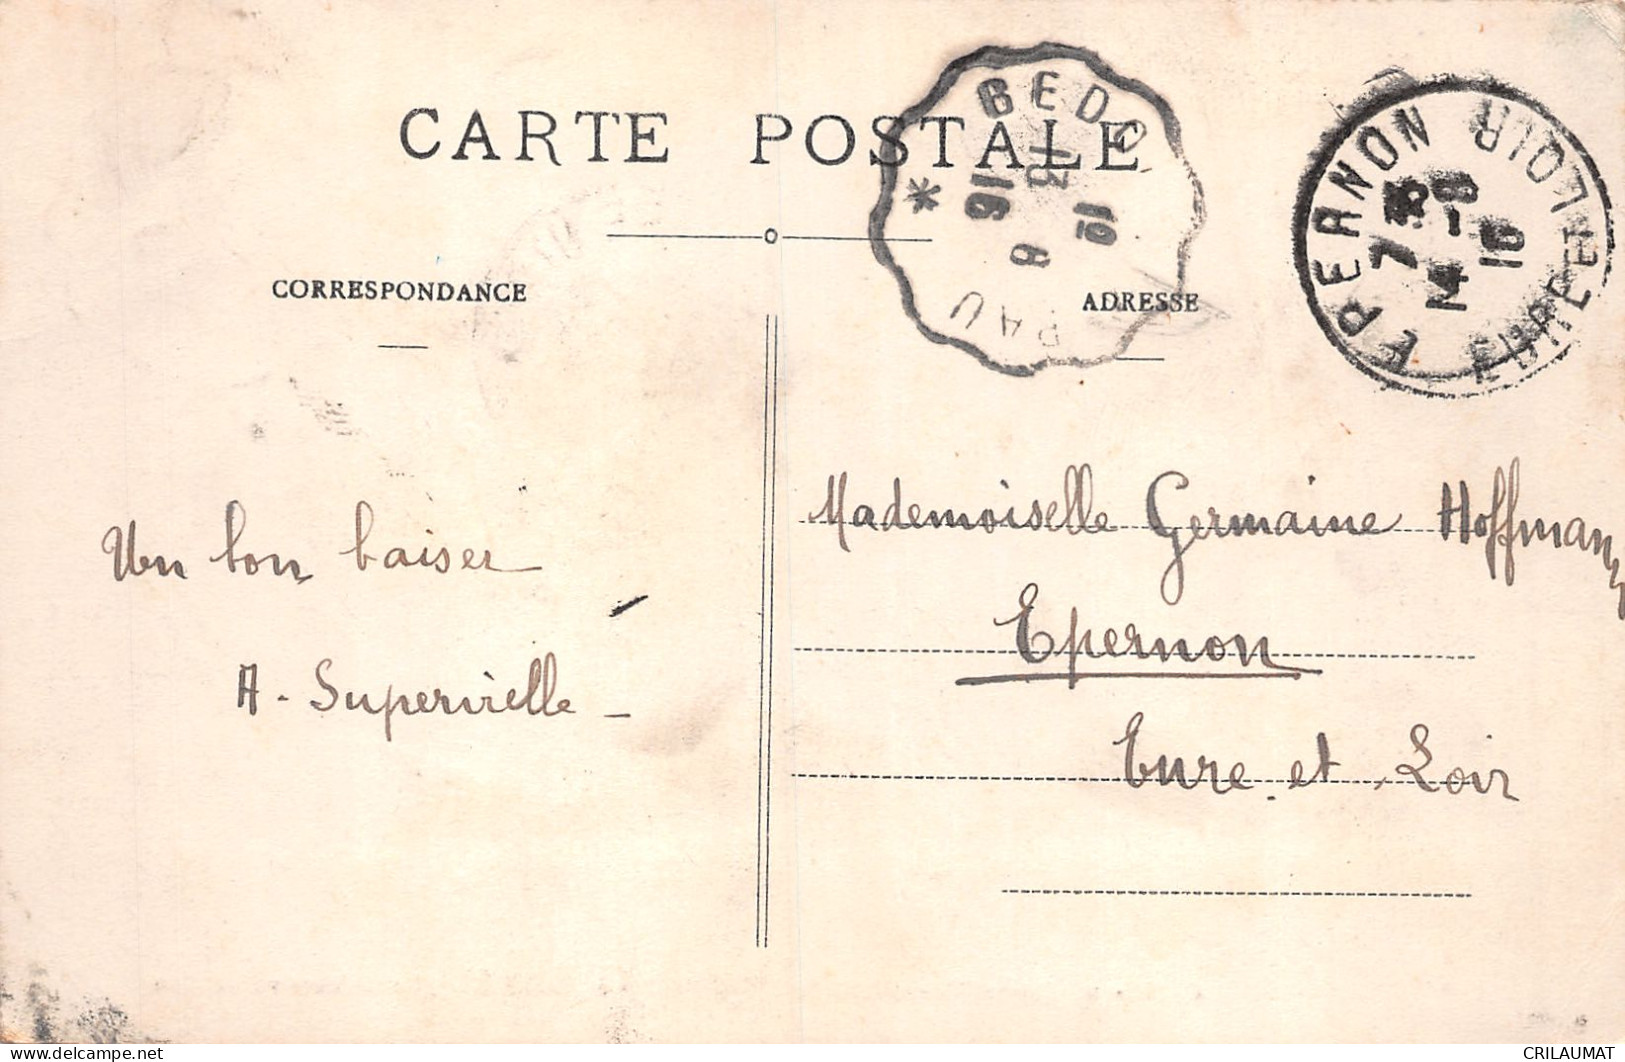 CARTE POSTALE
CORRESPONDANCE
ADRESSE
BEDO
13
16 8
PAU
EPERNON
EURE-ET-LOIR
7 35
14 - 8
16
Un bon baiser
A - Supervielle -
Mademoiselle Germaine Hoffmann
Epernon
Eure et Loir
CRILAUMAT